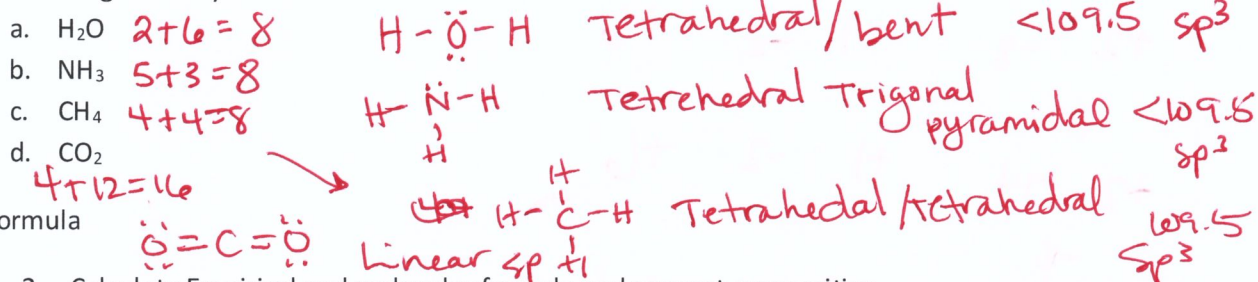 a. H₂O 2+6=8 H-Ö-H Tetrahedral/bent <109.5 sp³
b. NH₃ 5+3=8 H-N̈-H Tetrehedral Trigonal pyramidal <109.5
H sp³
c. CH₄ 4+4=8
d. CO₂
4+12=16
H
H-C-H Tetrahedal/tetrahedral 109.5
H sp³
ormula
Ö=C=Ö Linear sp